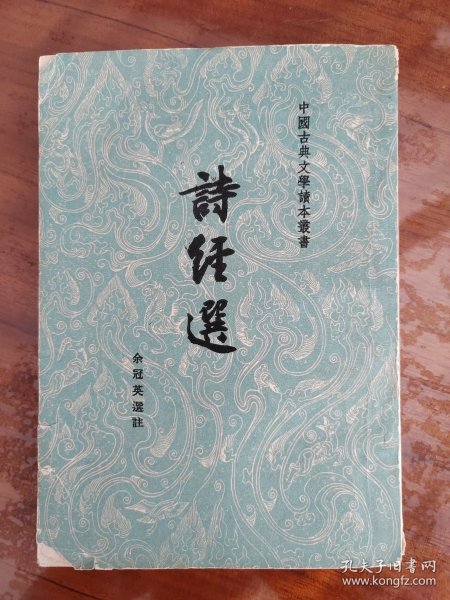 中國古典文學讀本叢書
詩經選
余冠英選註
孔夫子旧书网
www.kongfz.com